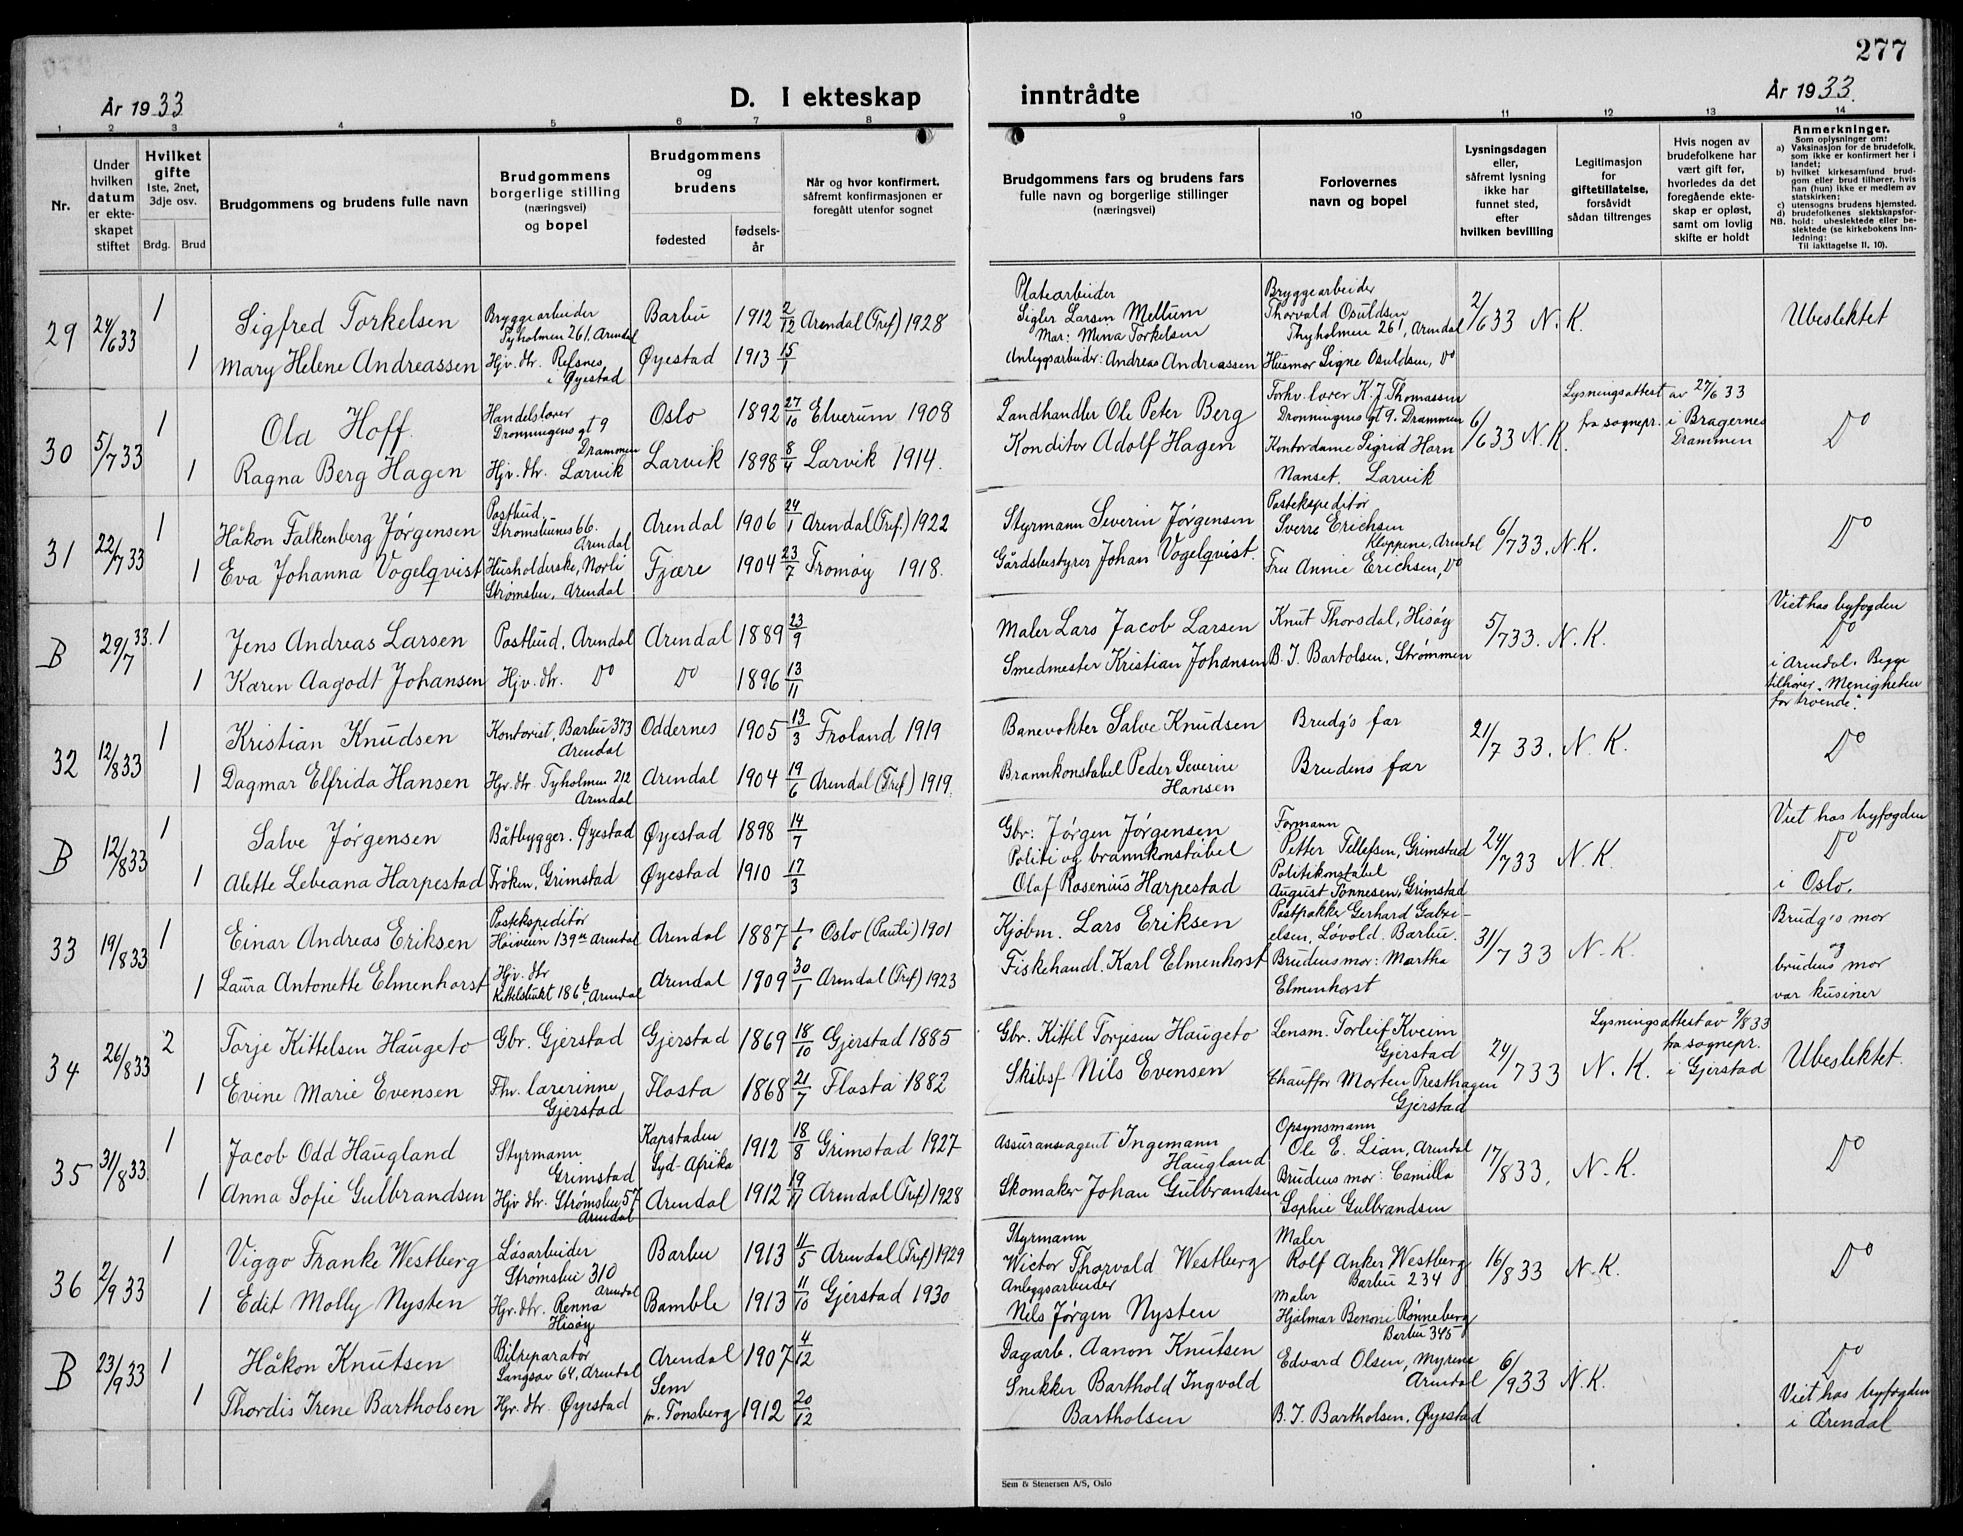 277
År 1933
D. I ekteskap inntrådte
År 1933.
1 2 3 4 5 6 7 8 9 10 11 12 13 14
Nr.
Under hvilken datum er ekteskapet stiftet
Hvilket gifte
1ste, 2net, 3dje osv.
Brdg. Brud
Brudgommens og brudens fulle navn
Brudgommens borgerlige stilling (næringsvei) og bopel
Brudgommens og brudens
fødested
fødselsår
Når og hvor konfirmert, såfremt konfirmasjonen er foregått utenfor sognet
Brudgommens fars og brudens fars fulle navn og borgerlige stillinger (næringsvei)
Forlovernes navn og bopel
Lysningsdagen eller, såfremt lysning ikke har funnet sted, efter hvilken bevilling
Legitimasjon for giftetillatelse, forsåvidt sådan tiltrenges
Hvis nogen av brudefolkene har vært gift før, hvorledes da det foregående ekteskap er opløst, samt om lovlig skifte er holdt
Anmerkninger.
Som oplysninger om:
a) Vaksinasjon for de brudefolk, som ikke er konfirmert her i landet;
b) hvilket kirkesamfund brudgom eller brud tilhører, hvis han (hun) ikke er medlem av statskirken;
c) utensogns brudens hjemsted.
d) brudefolkenes slektskapsforhold: ubeslektede eller beslektede (se kirkebokens innledning:
NB. Til iakttagelse II, 10).
29 24/6 33 1 Sigfred Torkelsen Bryggearbeider Tyholmen 261. Arendal Barbu 1912 2/12 Arendal (Tref) 1928 Platearbeider Sigler Larsen Mellum Mor: Mina Torkelsen Bryggearbeider Thorvald Osuldsen Thyholmen 261, Arendal 2/6 33 N.K. Ubeslektet
1 Mary Helene Andreassen Hjv. dtr. Refsnes i Øyestad Øyestad 1913 15/1 Anleggsarbeider: Andreas Andreassen Husmor Signe Osuldsen, Do
30 5/7 33 1 Ola Hoff. Handelslærer Dronningens gt 9 Drammen Oslo 1892 27/10 Elverum 1908 Landhandler Ole Peter Berg Forhv. lærer K. J. Thomassen Dronningns gt 9. Drammen 6/6 33 N.K. Lysningsattest av 27/6 33 fra sognepr. i Bragernes Drammen Do
1 Ragna Berg Hagen Hjv. dtr. Larvik Larvik 1898 8/4 Larvik 1914. Konditor Adolf Hagen Kontordame Sigrid Horn Nanset. Larvik
31 22/7 33 1 Håkon Falkenberg Jørgensen Postbud, Strømsbunes 66. Arendal Arendal 1906 24/1 Arendal (Tref.) 1922 Styrmann Severin Jørgensen Postekspeditør Sverre Erichsen Kløppene, Arendal 6/7 33. N.K. Do
1 Eva Johanna Vogelqvist Husholderske, Norli Strømsbu, Arendal Fjære 1904 23/7 Tromøy 1918. Gårdsbestyrer Johan Vogelqvist. Fru Annie Erichsen, Do
B 29/7 33. 1 Jens Andreas Larsen Postbud, Arendal Arendal 1889 23/9 Maler Lars Jacob Larsen Knut Thorsdal, Hisøy 5/7 33. N.K. Viet hos byfogden Do i Arendal. Begge tilhører "Menigheten for troende".
1 Karen Aagodt Johansen Hjv. dtr. Do Do 1896 13/11 Smedmester Kristian Johansen B. I. Bartolsen, Strømmen
32 12/8 33 1 Kristian Knudsen Kontorist, Barbu 373 Arendal Oddernes 1905 13/3 Froland 1919 Banevokter Salve Knudsen Brudg's far 21/7 33. N.K. Do
1 Dagmar Elfrida Hansen Hjv. dtr Tyholmen 212 Arendal Arendal 1904 19/6 Arendal (Tref) 1919. Brannkonstabel Peder Severin Hansen Brudens far
B 12/8 33 1 Salve Jørgensen Båtbygger. Øyestad Øyestad 1898 14/7 Gbr: Jørgen Jørgensen Formann Petter Tellefsen, Grimstad 24/7 33 N.K. Viet hos byfogden Do i Oslo.
1 Alette Lebeana Harpestad Frøken, Grimstad Øyestad 1910 17/3 Politi og brannkonstabel Olaf Rosenius Harpestad Politikonstabel August Tønnesen, Grimstad
33 19/8 33 1 Einar Andreas Eriksen Postekspeditør Høiveien 139 Arendal Arendal 1887 1/6 Oslo (Pauli) 1901 Kjøbm. Lars Eriksen Postpakker Gerhard Gabrielsen, Løvold. Barbu. 31/7 33 N.K. Brudg's mor og brudens mor var kusiner
1 Laura Antonette Elmenhorst Hjv. dtr Kittelsbukt 186 b, Arendal Arendal 1909 30/1 Arendal (Tref) 1923 Fiskehandl. Karl Elmenhorst Brudens mor: Martha Elmenhorst
34 26/8 33 2 Torje Kittelsen Haugeto Gbr. Gjerstad Gjerstad 1869 18/10 Gjerstad 1885 Gbr. Kittil Torjesen Haugeto Lensm. Torleif Kveim Gjerstad 24/7 33 N.K. Lysningsattest av 9/8 33 fra sognepr. i Gjerstad Ubeslektet.
1 Evine Marie Evensen Fhv. lærerinne Gjerstad Flosta 1868 21/7 Flosta 1882 Skibsf Nils Evensen Chauffør Morten Presthagen Gjerstad
35 31/8 33 1 Jacob Odd Haugland Styrmann Grimstad Kapstaden Syd-Afrika 1912 18/8 Grimstad 1927 Assuranseagent Ingemann Haugland Opsynsmann Ole E. Lian, Arendal 17/8 33. N.K. Do
1 Anna Sofie Gulbrandsen Hjv dtr. Strømsbu 57 Arendal Arendal 1912 19/11 Arendal (Tref) 1928 Skomaker Johan Gulbrandsen Brudens mor: Camilla Sophie Gulbrandsen
36 2/9 33 1 Viggo Franke Westberg Løsarbeider Strømsbu 310 Arendal Barbu 1913 11/5 Arendal (Tref) 1929 Styrmann Wictor Thorvald Westberg Maler Rolf Anker Westberg Barbu 234 16/8 33 N.K. Do
1 Edit Molly Nysten Hjv. dtr. Renna Hisøy Bamble 1913 11/10 Gjerstad 1930 Anleggsarbeider Nils Jørgen Nysten Maler Hjalmar Benoni Rønneberg Barbu 345
B 23/9 33 1 Håkon Knutsen Bilreparatør Langsæv 64, Arendal Arendal 1907 4/12 Dagarb. Aanon Knutsen Edvard Olsen, Myrene Arendal 6/9 33 N.K. Do Viet hos byfogden i Arendal
1 Thordis Irene Bartholsen Hjv. dtr. Øyestad Sem pr. Tønsberg 1912 20/12 Snekker Barthold Ingvald Bartholsen B. I. Bartholsen. Øyestad
Sem & Stenersen A/S, Oslo